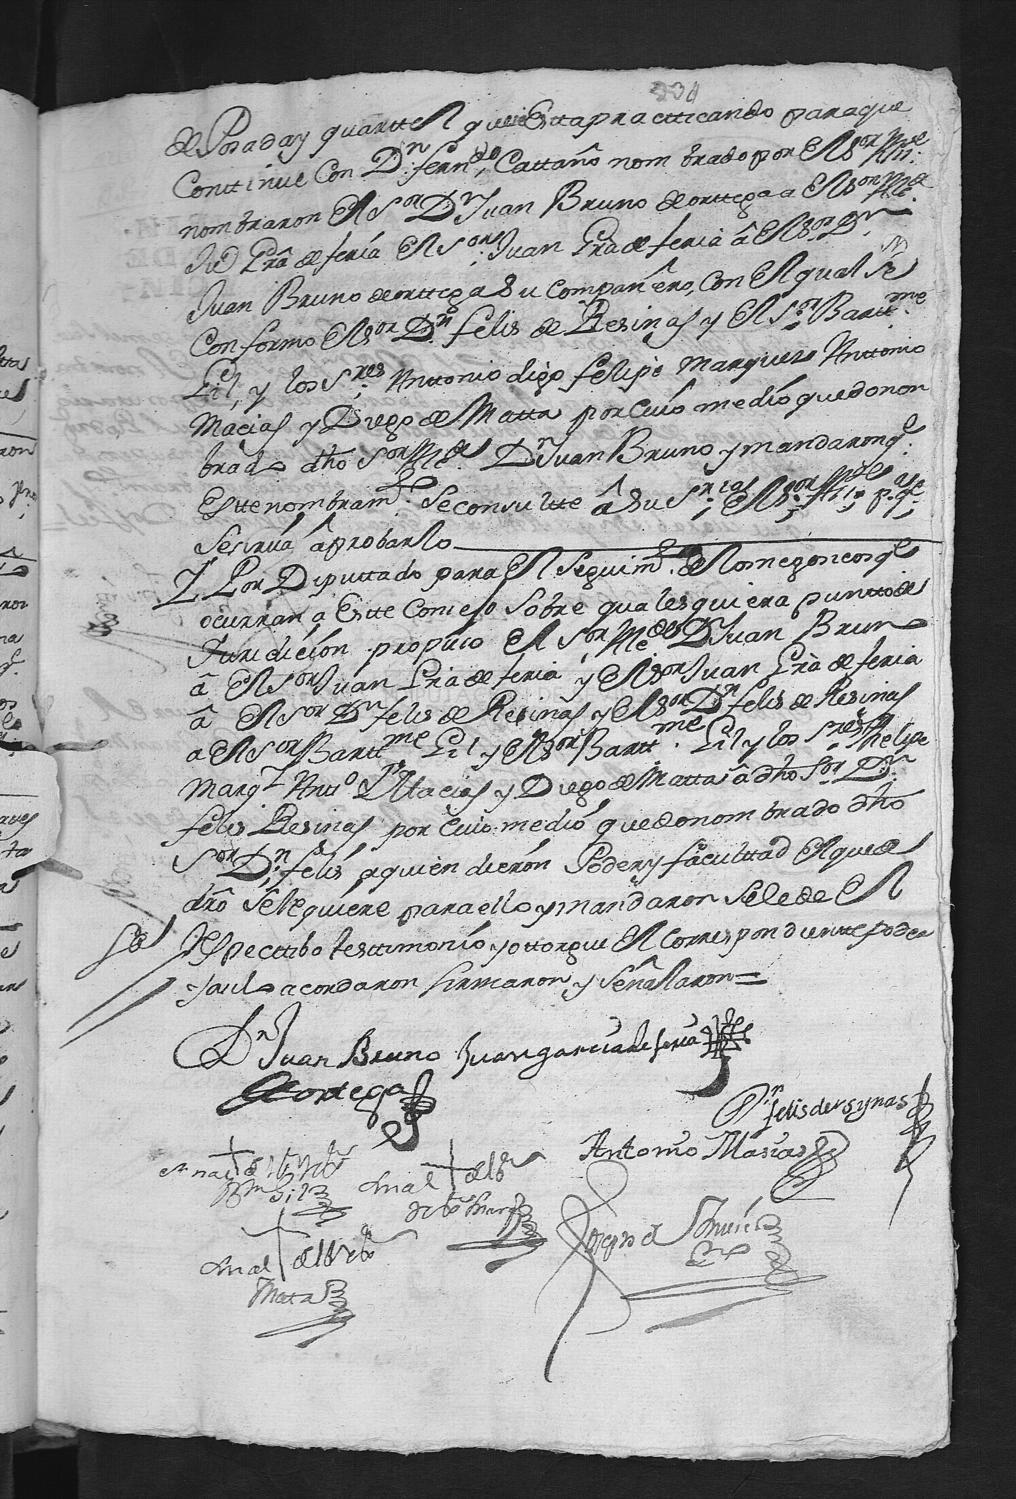 de Posaday quarttel que se Estta practticando para que
Conttinue Con Dn. ferndo. Cattaño nombrado por el Sor Mre
nombraron el Sor Dn Juan Bruno de orttega a el Sor Mre
Ju Gra de feria el Sor Juan Gra de feria â el Sor Dn
Juan Bruno de orttega su Compañero, Con el qual se
Conformo el Sor Dn. felis de Resinas y el Sr. Bartme
Gil, y los Sres. Anttonio digo felipe Marquez Anttonio
Macias y Diego de Matta por Cuio medio quedo nom
brado dho Sor Dn Juan Bruno y mandaron qe.
Estte nombramto. se consultte â su
se sirva âprobarlo
Por Diputtado para el Seguimto. de los negocios qe
ocurran a Estte Consejo sobre qualesquiera puntto de
Juridicion propuso el Sor Dn Juan Bruno
â el Sor Juan Gria de feria y el Sor Juan Gria de feria
â el Sor Dn felis de Resinas y el Sor Dn felis de Resinas
a el Sor Barttme Gil y el Sor Barttme. Gil y los Sres Phelipe
Marqz Antto Macias y Diego de Matta â dho Sor Dn
felis Resinas por Cuio medio quedo nombrado dho
Sor Dn felis aquien dieron Poder y facultad el que de
dro se requiere para ello y mandaron se le de el
Respecttibo testtimonio y ottorgue el Correspondientte poder
y asi lo acordaron firmaron y señalaron =
Dn Juan Bruno Juan garcia de feria
de ortega
Dn felis de rsynas
Antonio Masias
señal de
Bme Gil
señal de
señal de
Mata